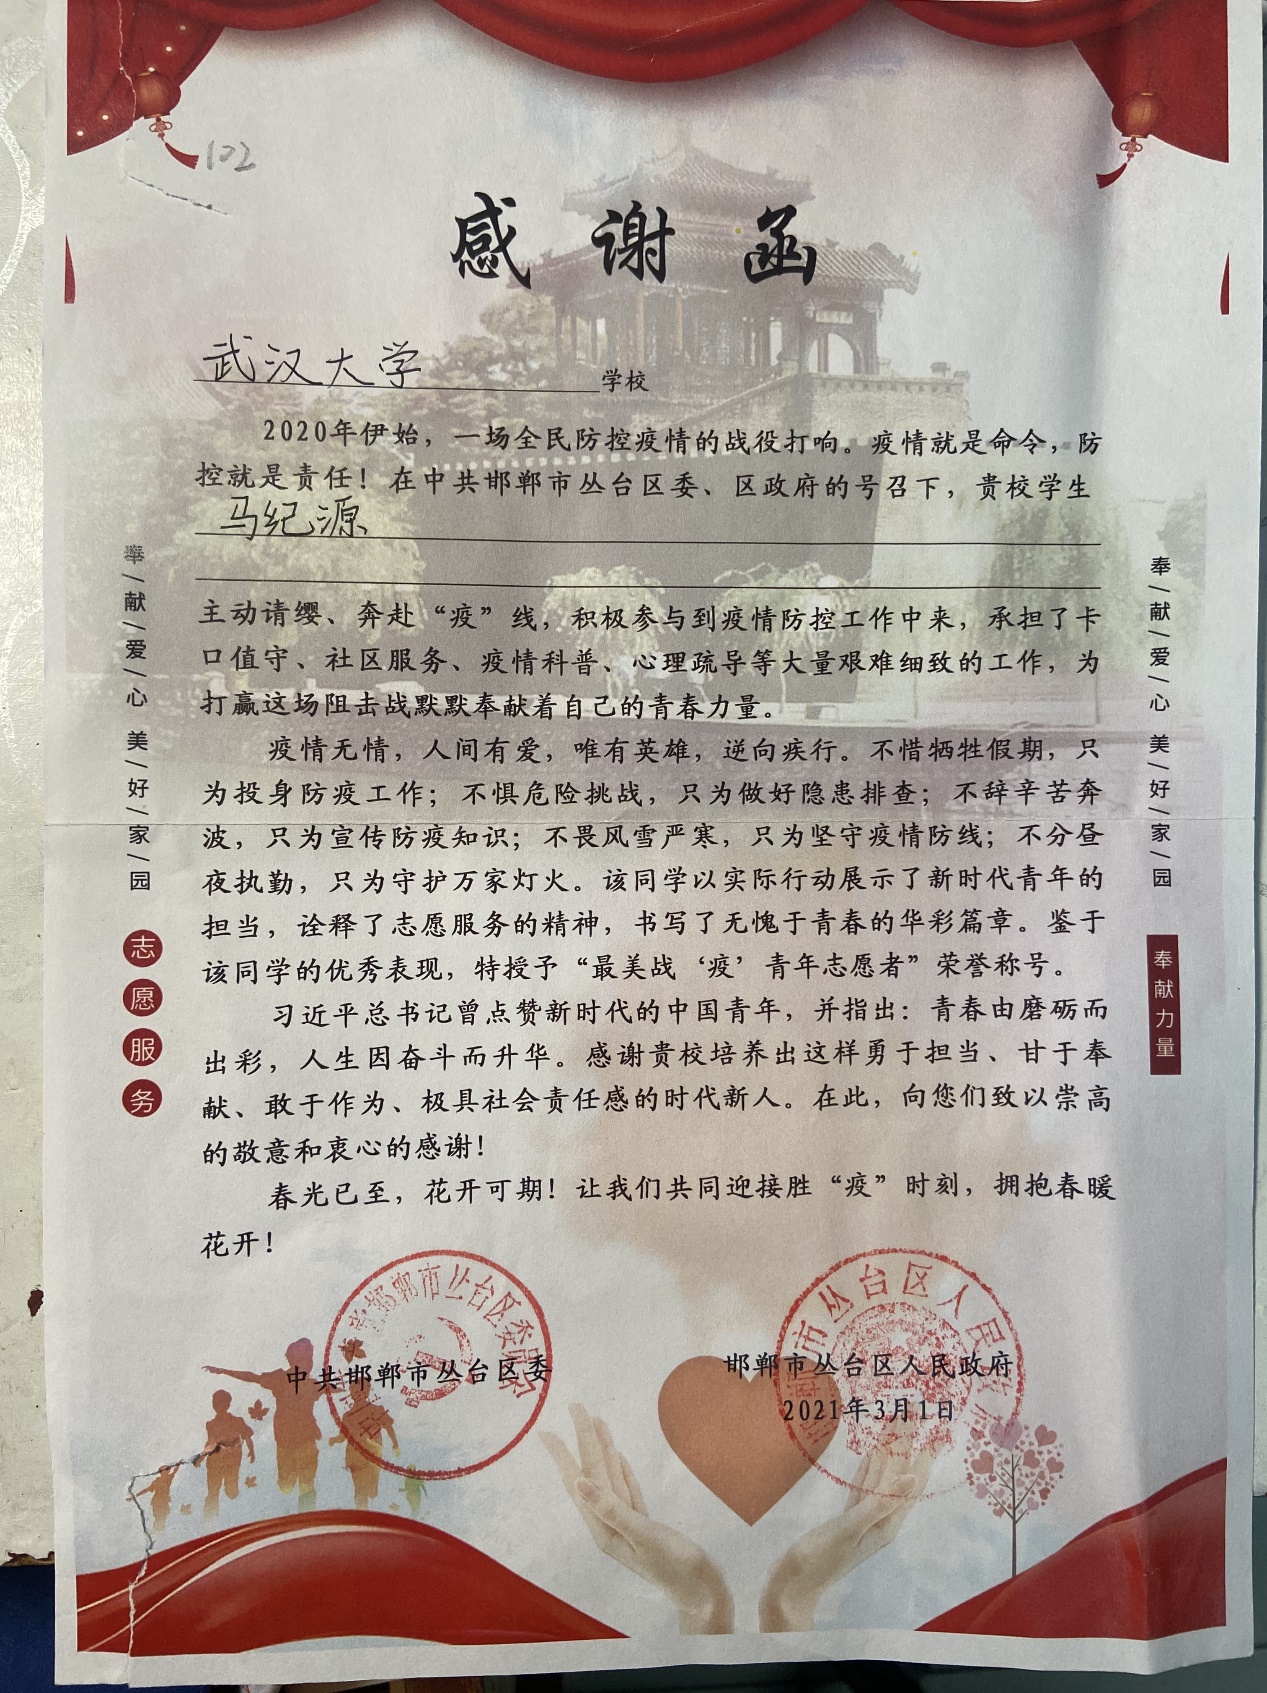 102
感谢函
武汉大学 学校
2020年伊始，一场全民防控疫情的战役打响。疫情就是命令，防
控就是责任！在中共邯郸市丛台区委、区政府的号召下，贵校学生
马纪源
主动请缨、奔赴“疫”线，积极参与到疫情防控工作中来，承担了卡
口值守、社区服务、疫情科普、心理疏导等大量艰难细致的工作，为
打赢这场阻击战默默奉献着自己的青春力量。
疫情无情，人间有爱，唯有英雄，逆向疾行。不惜牺牲假期，只
为投身防疫工作；不惧危险挑战，只为做好隐患排查；不辞辛苦奔
波，只为宣传防疫知识；不畏风雪严寒，只为坚守疫情防线；不分昼
夜执勤，只为守护万家灯火。该同学以实际行动展示了新时代青年的
担当，诠释了志愿服务的精神，书写了无愧于青春的华彩篇章。鉴于
该同学的优秀表现，特授予“最美战‘疫’青年志愿者”荣誉称号。
习近平总书记曾点赞新时代的中国青年，并指出：青春由磨砺而
出彩，人生因奋斗而升华。感谢贵校培养出这样勇于担当、甘于奉
献、敢于作为、极具社会责任感的时代新人。在此，向您们致以崇高
的敬意和衷心的感谢！
春光已至，花开可期！让我们共同迎接胜“疫”时刻，拥抱春暖
花开！
中共邯郸市丛台区委
邯郸市丛台区人民政府
2021年3月1日
奉/献/爱/心 美/好/家/园
志愿服务
奉/献/爱/心 美/好/家/园
奉献力量
邯郸市丛台区委
市丛台区人民